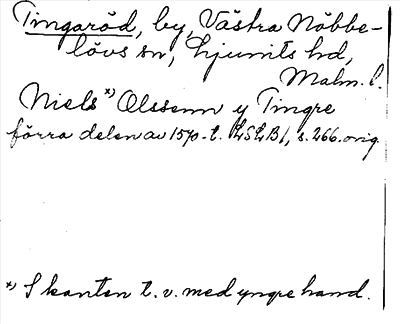 Tingaröd, by, Västra Nöbbe-
lövs sn, Ljunits hd,
Malm. l.
Niels *) Olssenn y Tingre
förra delen av 1570-t. LSLB1, s. 266. orig.
*) I kanten t. v. med yngre hand.